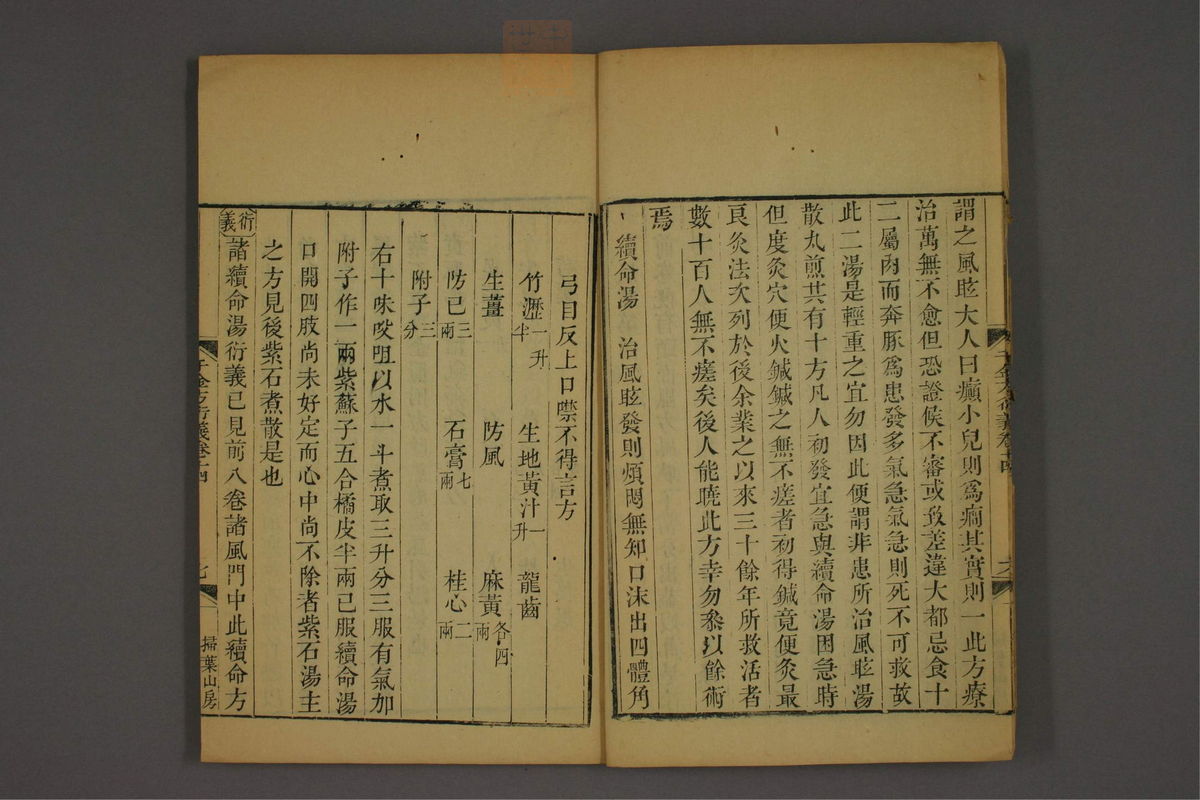 謂之風眩大人曰癲小兒則為癇其實則一此方療
治萬無不愈但恐證候不審或致差違大都忌食十
二屬肉而奔豚為患發多氣急氣急則死不可救故
此二湯是輕重之宜勿因此便謂非患所治風眩湯
散丸煎其有十方凡人初發宜急與續命湯困急時
但度灸穴便火鍼鍼之無不瘥者初得鍼竟便灸最
良灸法次列於後余業之以來三十餘年所救活者
數十百人無不瘥矣後人能曉此方幸勿參以餘術
焉
續命湯 治風眩發則煩悶無知口沫出四體角
弓目反上口噤不得言方
竹瀝一升半 生地黃汁一升 龍齒
生薑 防風 麻黃各四兩
防己三兩 石膏七兩 桂心二兩
附子三分
右十味㕮咀以水一斗煮取三升分三服有氣加
附子作一兩紫蘇子五合橘皮半兩已服續命湯
口開四肢尚未好定而心中尚不除者紫石湯主
之方見後紫石煮散是也
衍義 諸續命湯衍義已見前八卷諸風門中此續命方
千金方衍義卷十四 七 掃葉山房